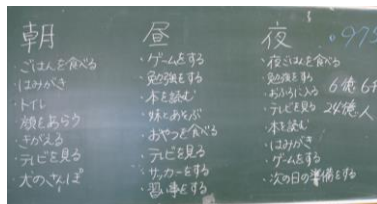 朝
・ごはんを食べる
・はみがき
・トイレ
・顔をあらう
・きがえる
・テレビを見る
・犬のさんぽ
昼
・ゲームをする
・勉強をする
・本を読む
・妹とあそぶ
・おやつを食べる
・テレビを見る
・サッカーをする
・習い事をする
夜
・夜ごはんを食べる
・勉強をする
・おふろに入る
・テレビを見る
・本を読む
・はみがき
・ゲームをする
・次の日の準備をする
・975
6億6千
24億人